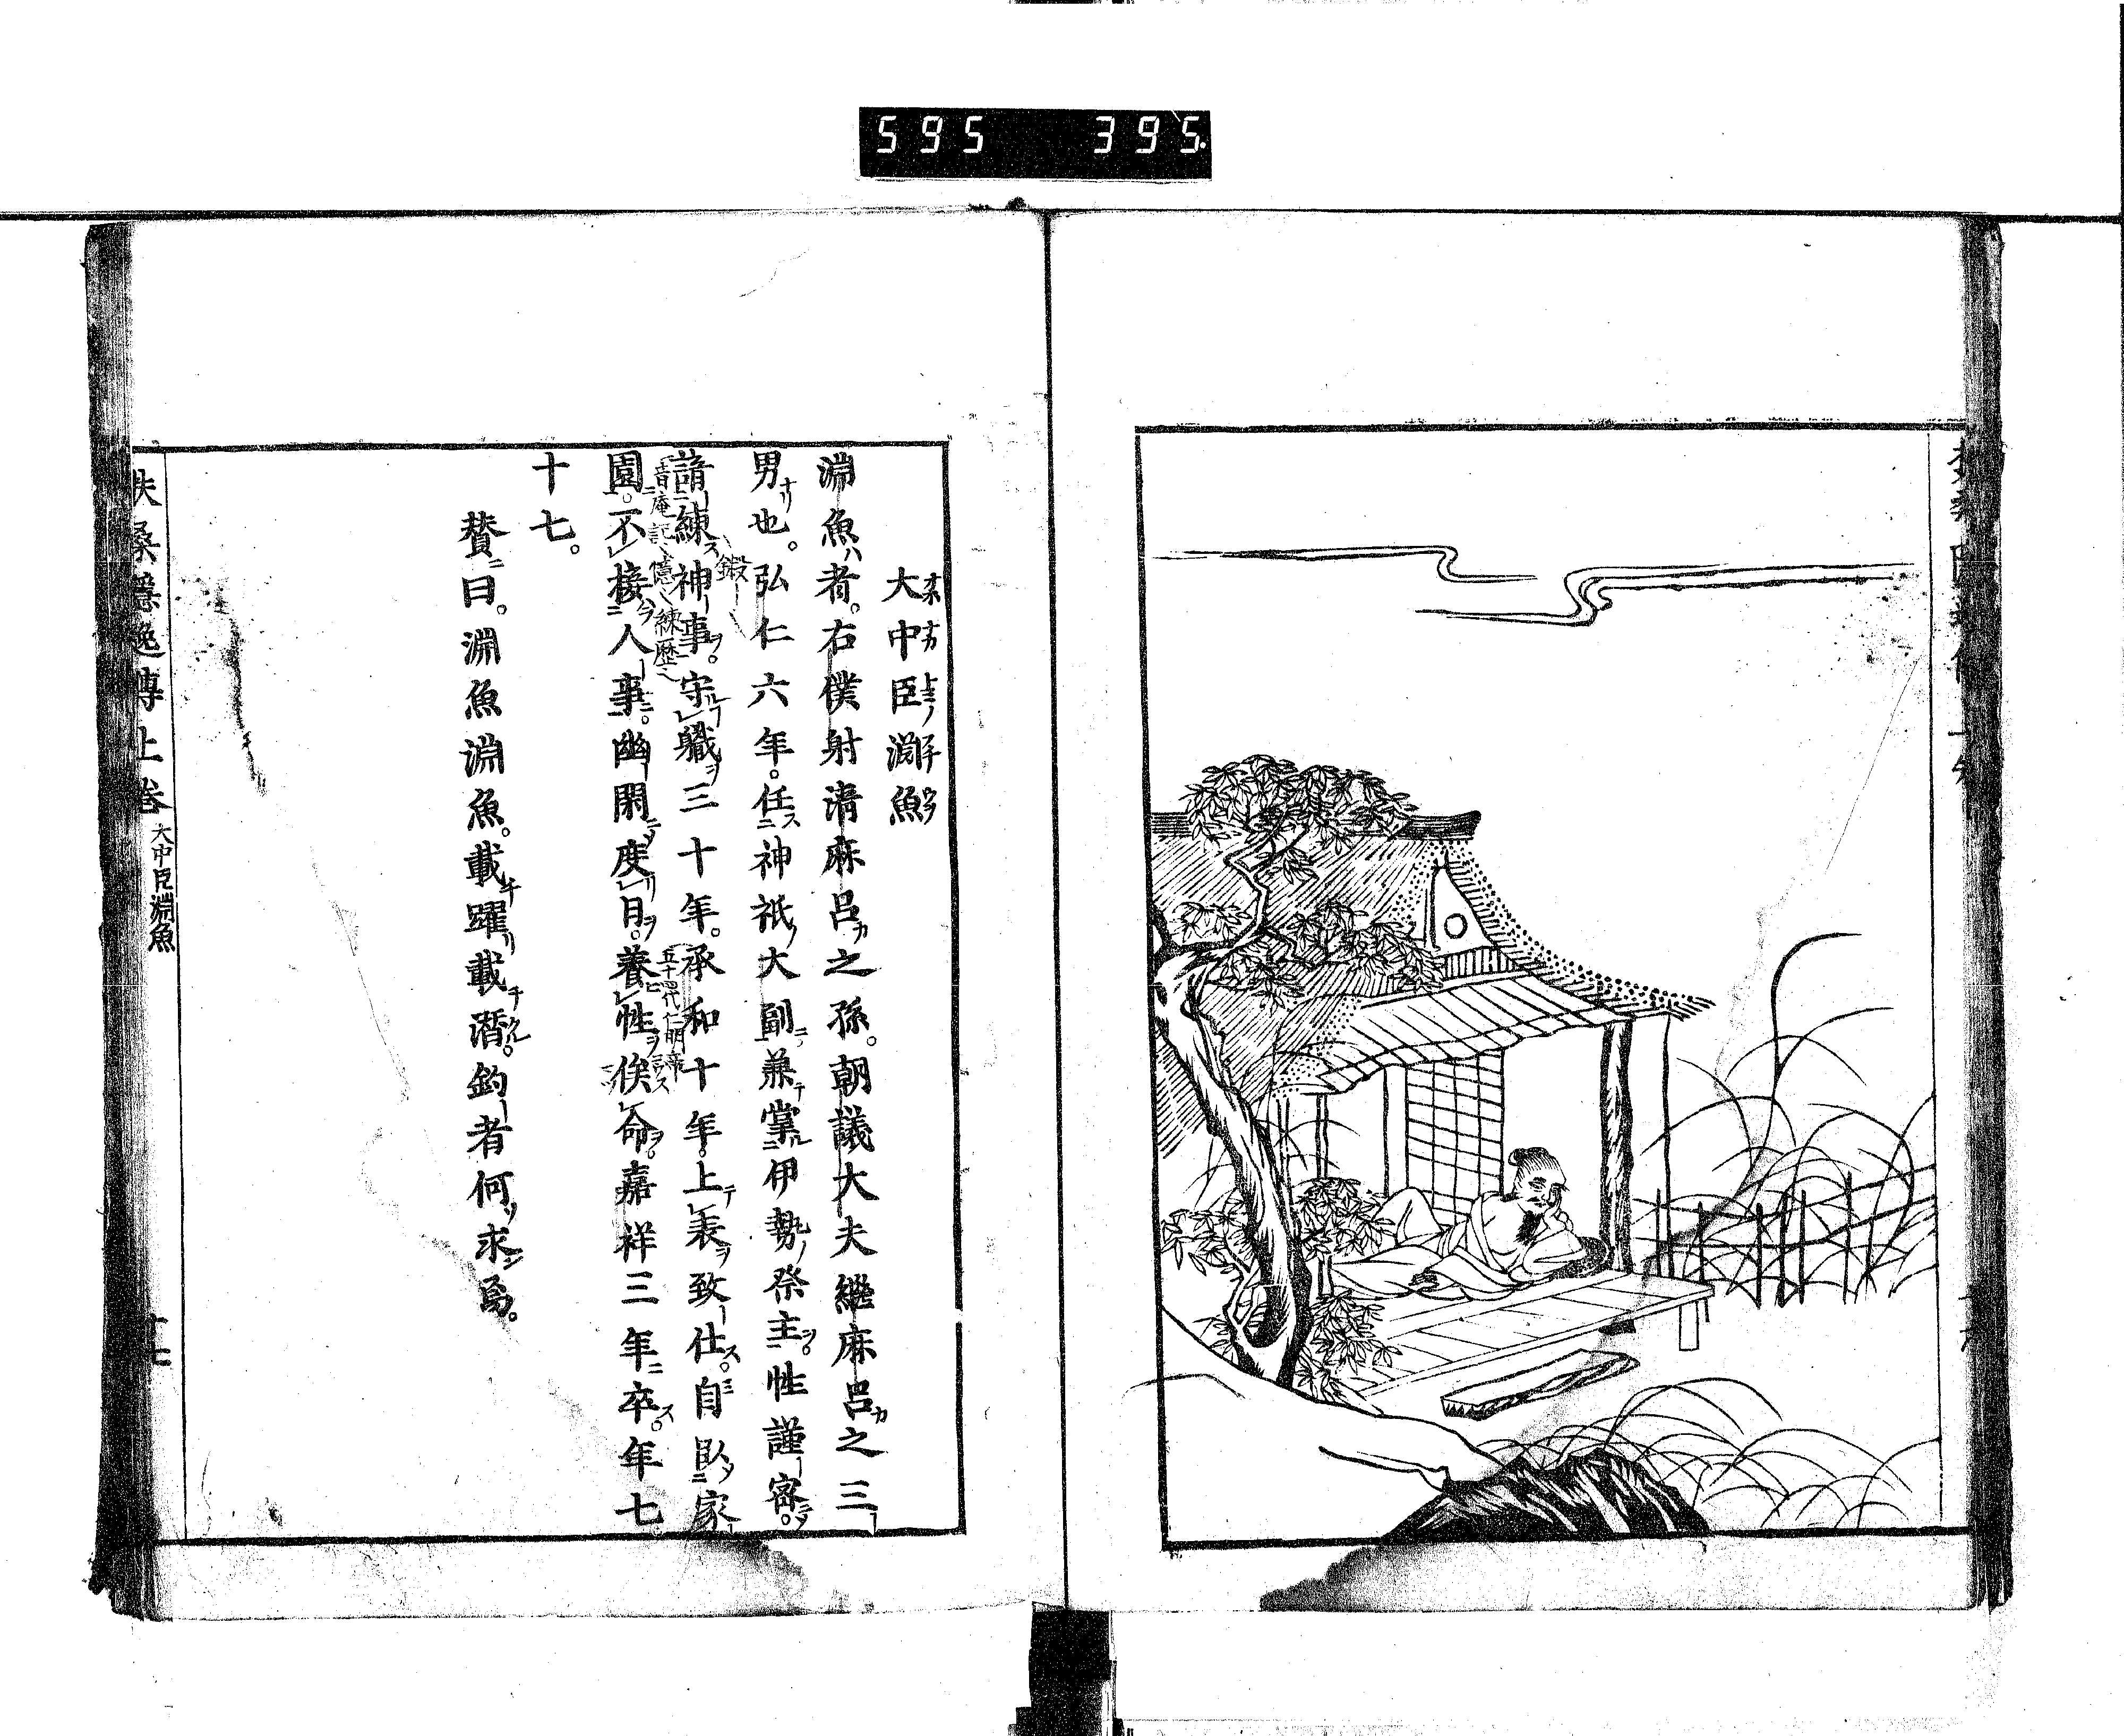 595 395.
大中臣淵魚
淵魚者。右僕射清麻呂之孫。朝議大夫繼麻呂之三
男也。弘仁六年。任神祇大副兼掌伊勢祭主。性謹密。
諳練神事。守職三十年。承和十年。上表致仕。自臥家
園。不接人事。幽閑度日。養性俟命。嘉祥三年卒。年七
十七。
賛曰。淵魚淵魚。載躍載潛。釣者何求焉。
扶桑隱逸傳上卷 大中臣淵魚 十七